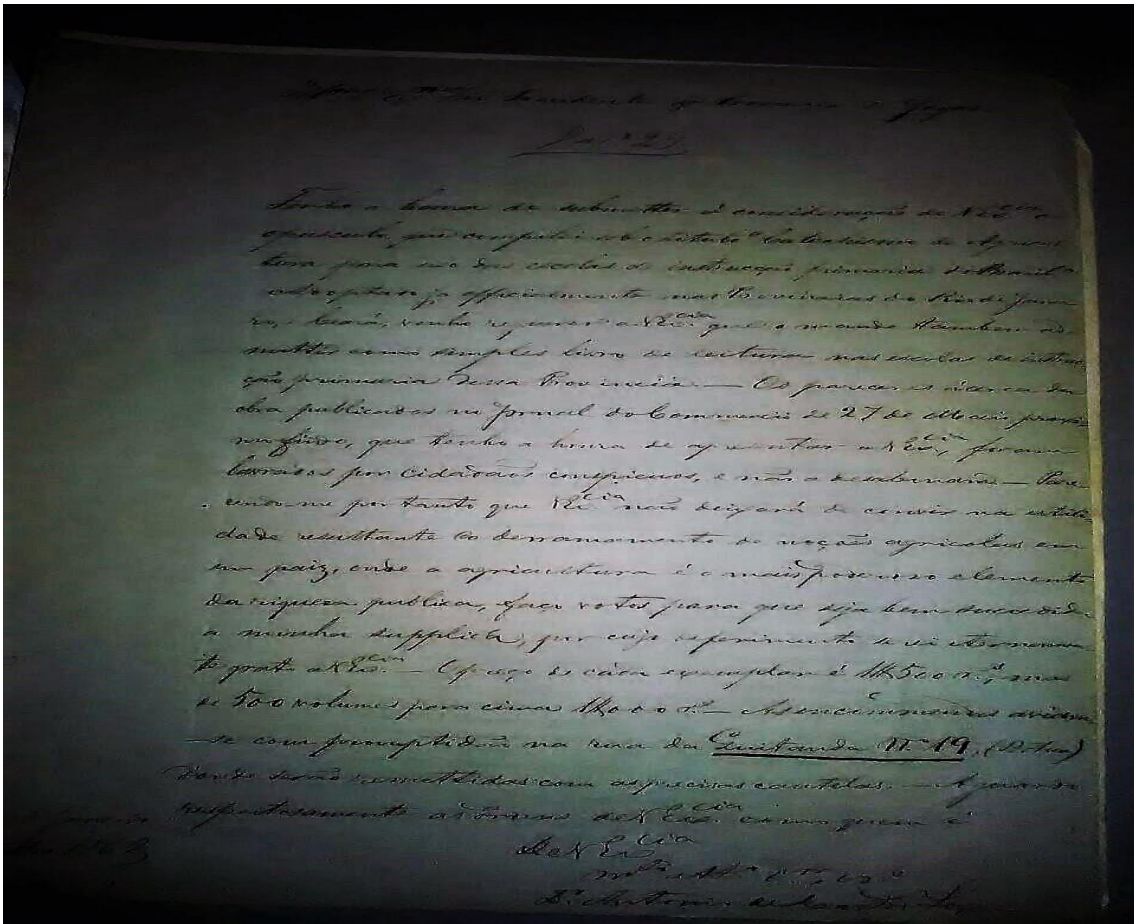 Illmo Exmo Snr Presidente da Provincia de Goyaz
Tenho a honra de submetter á consideração de V Ex.cia o
opusculo, que compilei sob o titulo "Catecismo de Agricul
tura para uso das escolas de instrucção primaria do Brasil"
adoptan já officialmente nas Provincias do Rio de Janei
ro, e Ceará, venho requerer a V Ex.cia que o mande tambem ad
mittir como simples livro de leitura nas escolas de instruc
ção primaria dessa Provincia. — Os pareceres ácerca da
obra publicados no Jornal do Commercio de 27 de Maio, proxi
mo findo, que tenho a honra de apresentar a V Ex.cia, foram
lavrados por cidadãos conspicuos, e não a desabonarão — Pare
cendo-me por tanto que V Ex.cia não deixará de convir na utili
dade resultante do derramamento de noções agricolas em
um paiz, onde a agricultura é o mais poderoso elemento
da riqueza publica, faço votos para que seja bem succedida
a minha supplica, por cujo deferimento
grato a V Ex.cia. — O preço de cada exemplar é 1$500 r.s, mas
de 500 volumes para cima 1$000 r.s — As encommendas aviam
-se com promptidão na rua da Quitanda N.º 19, (Botica)
donde serão remettidas com as precisas cautelas. — Aguardo
respeitosamente as ordens de V Ex.cia como quem é
De V Ex.cia
Dr Antonio de